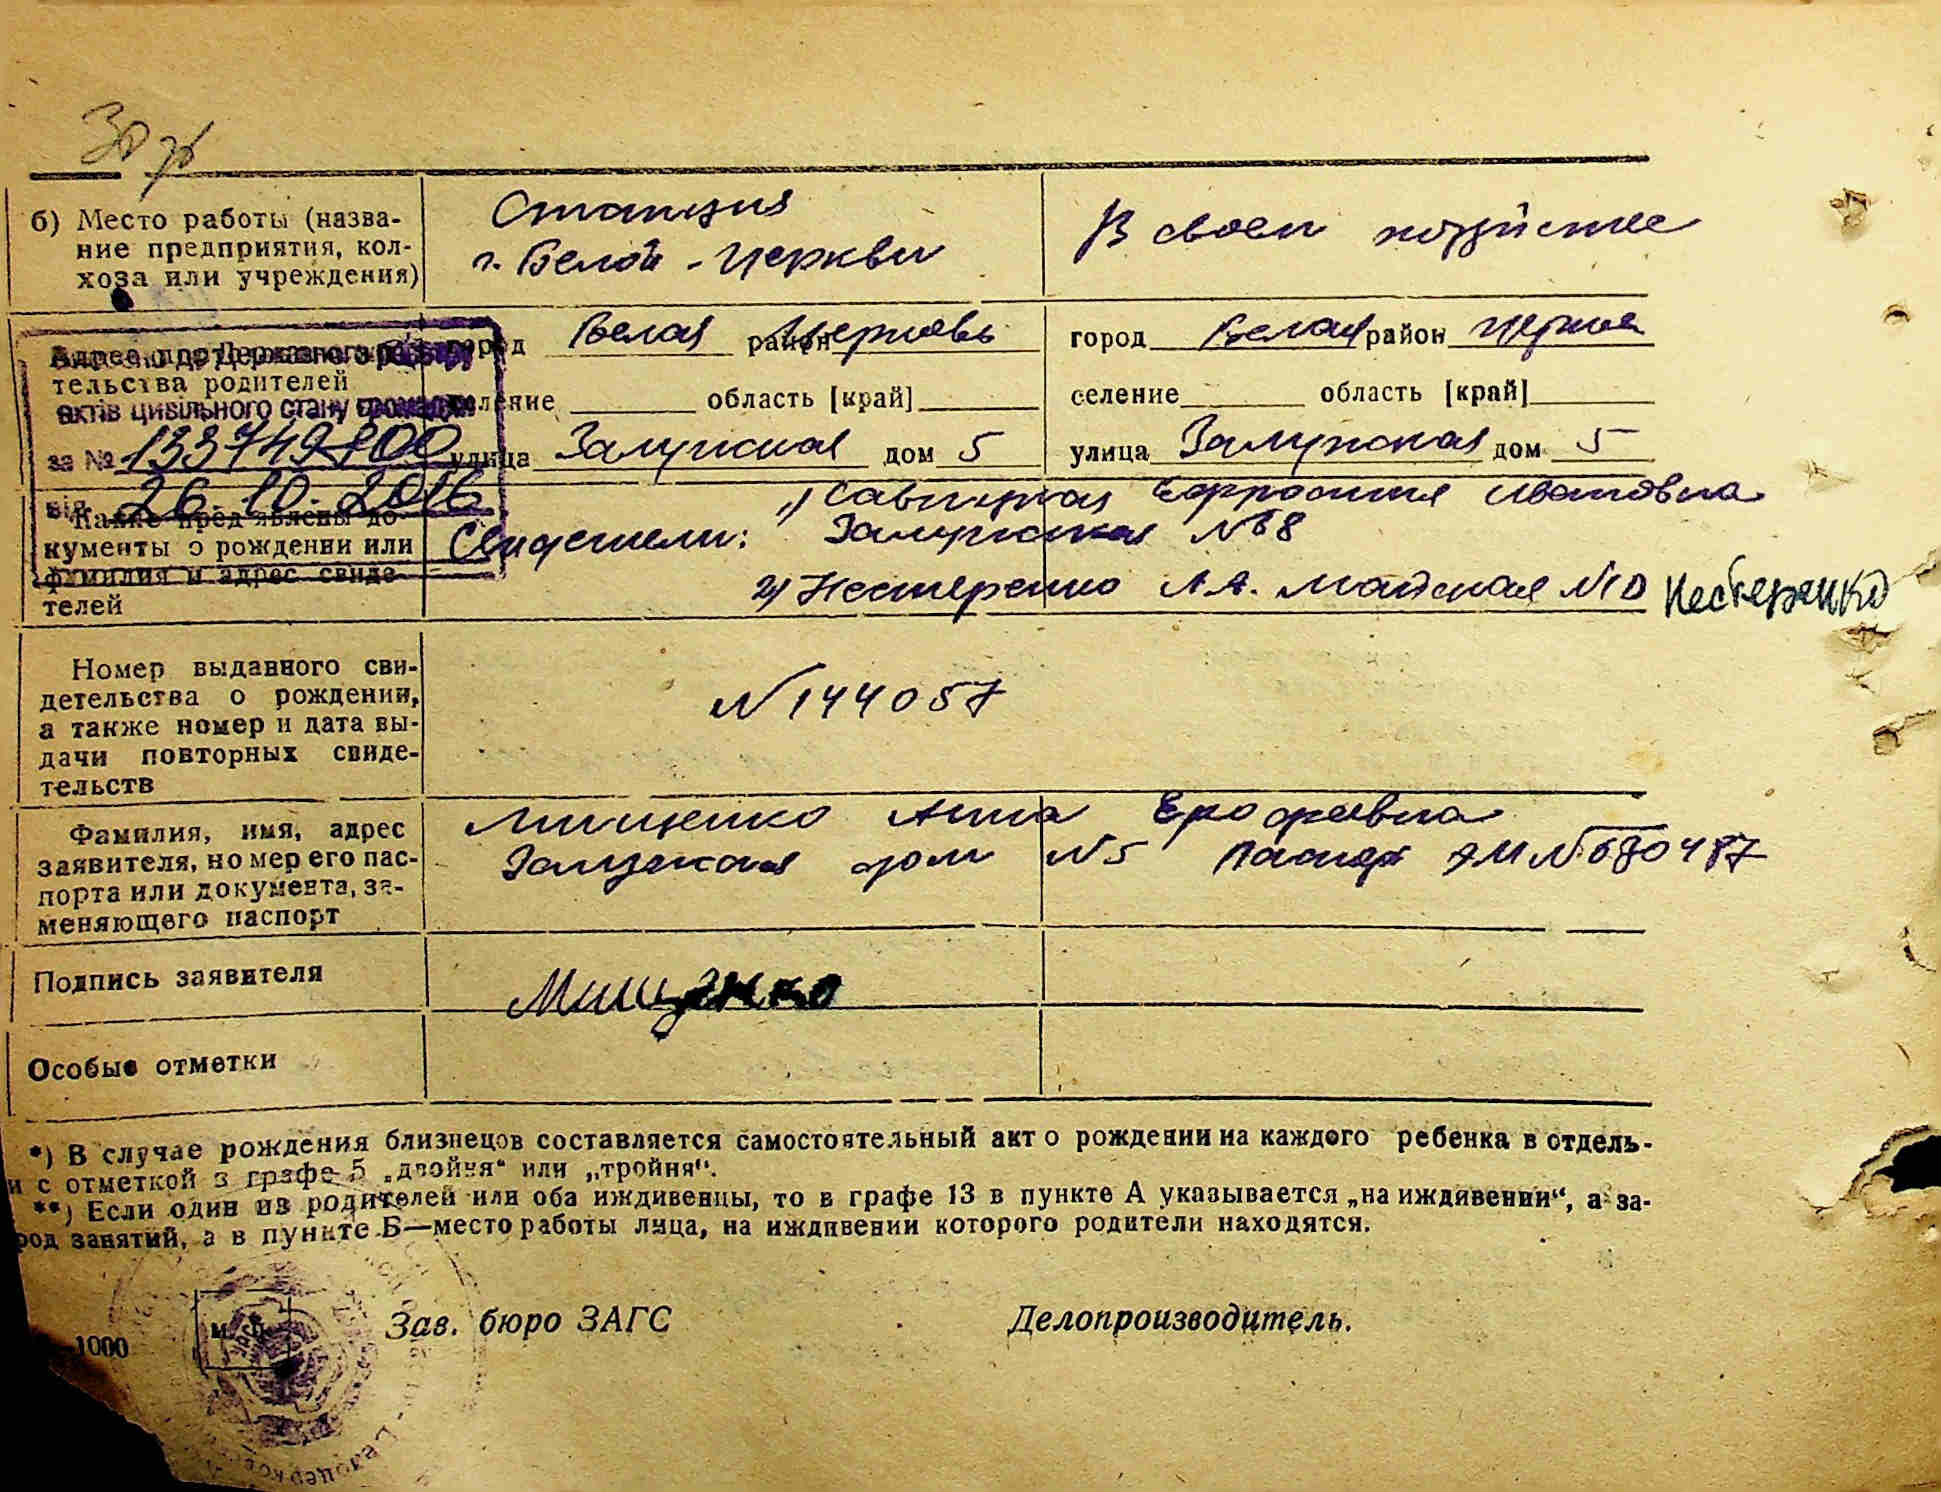 б) Место работы (назва-
ние предприятия, кол-
хоза или учреждения)
Станция
г. Белой - Церкви
В своем хозяйстве
Адрес
тельства родителей
актів цивільного стану громадян
за № 133749800
від 26.10.2016
город Белая район Церковь
селение область [край]
улица Залужская дом 5
город Белая район Церковь
селение область [край]
улица Залужская дом 5
Какие предъявлены до-
кументы о рождении или
фамилия и адрес свиде-
телей
Свидетели: 1) Савицкая Ефросиния Ивановна
Залужская №68
2) Нестеренко А. А. Майская №10 Нестеренко
Номер выданного сви-
детельства о рождении,
а также номер и дата вы-
дачи повторных свиде-
тельств
№144057
Фамилия, имя, адрес
заявителя, номер его пас-
порта или документа, за-
меняющего паспорт
Мищенко Анна Ерофеевна
Залужская дом №5 паспорт №680487
Подпись заявителя
Мищенко
Особые отметки
*) В случае рождения близнецов составляется самостоятельный акт о рождении на каждого ребенка в отдель-
и с отметкой в графе 5 „двойня“ или „тройня“.
**) Если один из родителей или оба иждивенцы, то в графе 13 в пункте А указывается „на иждивении“, а за-
род занятий, а в пункте Б—место работы лица, на иждивении которого родители находятся.
М. П.
Зав. бюро ЗАГС
Делопроизводитель.
1000